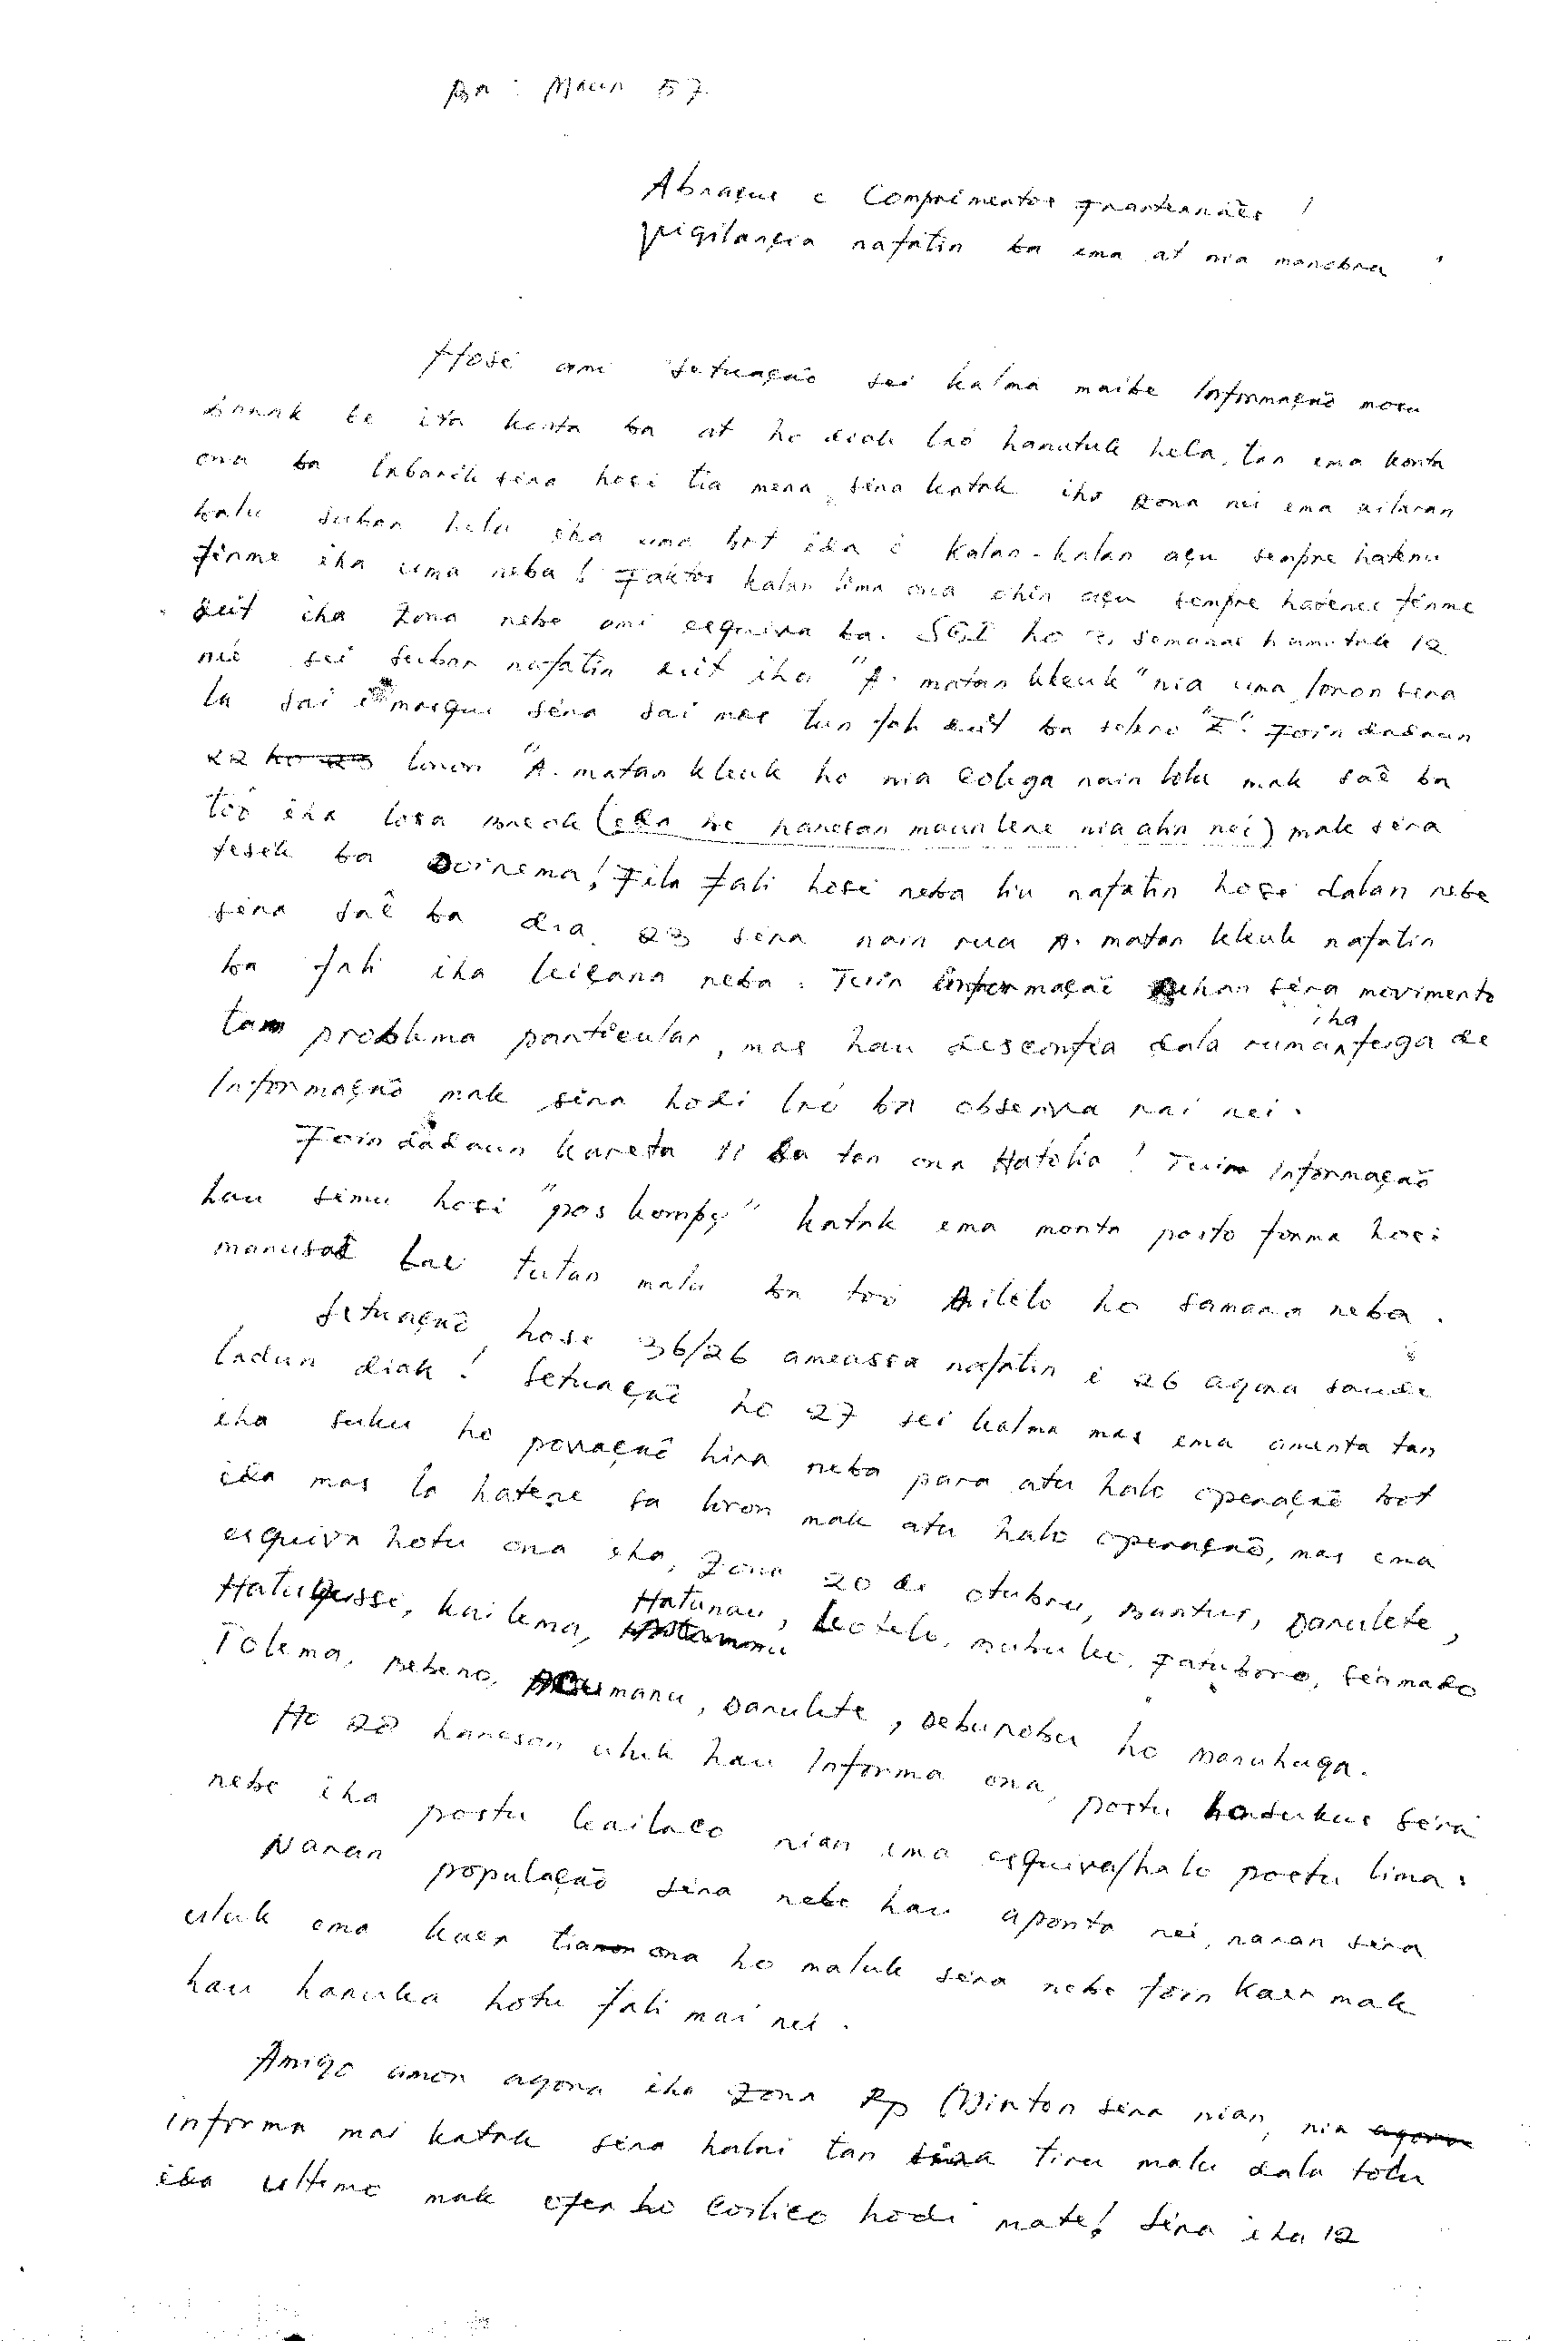 Ba : Maun 57.
Abraçus e Comprimentos Franternães !
Vigilançia nafatin ba ema at nia manobra !
Hosi ami setuação sei kalma maibe Informação mosu
barak be ita konta ba at ho diak lao hamutuk hela, tan ema konta
ona ba labarik sira hosi tia mena, sira katak iha zona nei ema ailaran
balu suban hela iha uma bot ida e kalan-kalan açu sempre hatenu
firme iha uma neba ! Faktos kalan lima ona ohin açu sempre hatenu firme
deit iha zona nebe ami esquiva ba. SGI ho semanal hamutuk 12
nei sei suban nafatin deit iha "A. matan kleuk" nia uma, loron sira
la sai e masqui sira sai mas tun fali deit ba sebro "Z". Foin dadaun
22 ho 23 loron "A. matan kleuk ho nia colega nain tolu mak saê ba
too iha losa breok (ida be hanesan maun lere nia alin nei) mak sira
fesek ba Doirema! Fila fali hosi neba liu nafatin hosi dalan nebe
sira saê ba dia 23 sira nain rua A. matan kleuk nafatin
ba fali iha leiçana neba. Tuin informaçaõ dehan sira movimento
tam problema particular, mas hau desconfia dala ruma iha fuga de
Informação mak sira hodi lao ba observa rai nei.
Foin dadaun kareta 11 ba tan ona Hatolia ! Tuir Informação
hau simu hosi "pos kompç" katak ema monta posto forma hosi
manusae bae tutan malu ba too Ailelo ho samara neba.
Setuaçaõ hosi 36/26 ameassa nafatin e 26 agora saude
ladun diak ! Setuaçaõ ho 27 sei kalma mas ema amenta tan
iha suku ho povaçaõ hira neba para atu halo operaçaõ bot
ida mas la hatene sa loron mak atu halo operação, mas ema
esquiva hotu ona iha, Zona 20 de otubru, Buntur, Darulete,
Hatuquesse, kailema, Hatunau, Leotelo, Buhuleu, Fatuboro, Sermado
Tolema, Bebero, Aumanu, Darulete, Deburobu ho Baruhuga.
Ho 28 hanesan uluk hau Informa ona, postu hasukus sera
nebe iha postu kailaco nian ema esquiva/halo postu lima.
Naran população sira nebe hau aponta nei, naran sira
uluk ema kaer tia ona ho maluk sira nebe foin kaer mak
hau haruka hotu fali mai nei.
Amigo amon agora iha Zona Rp (Vinton sira nian, nia agora
informa mai katak sira halai tan sira tiru malu dala tolu
ida ultimo mak ofer ho Coslico hodi mate! Sira iha 12